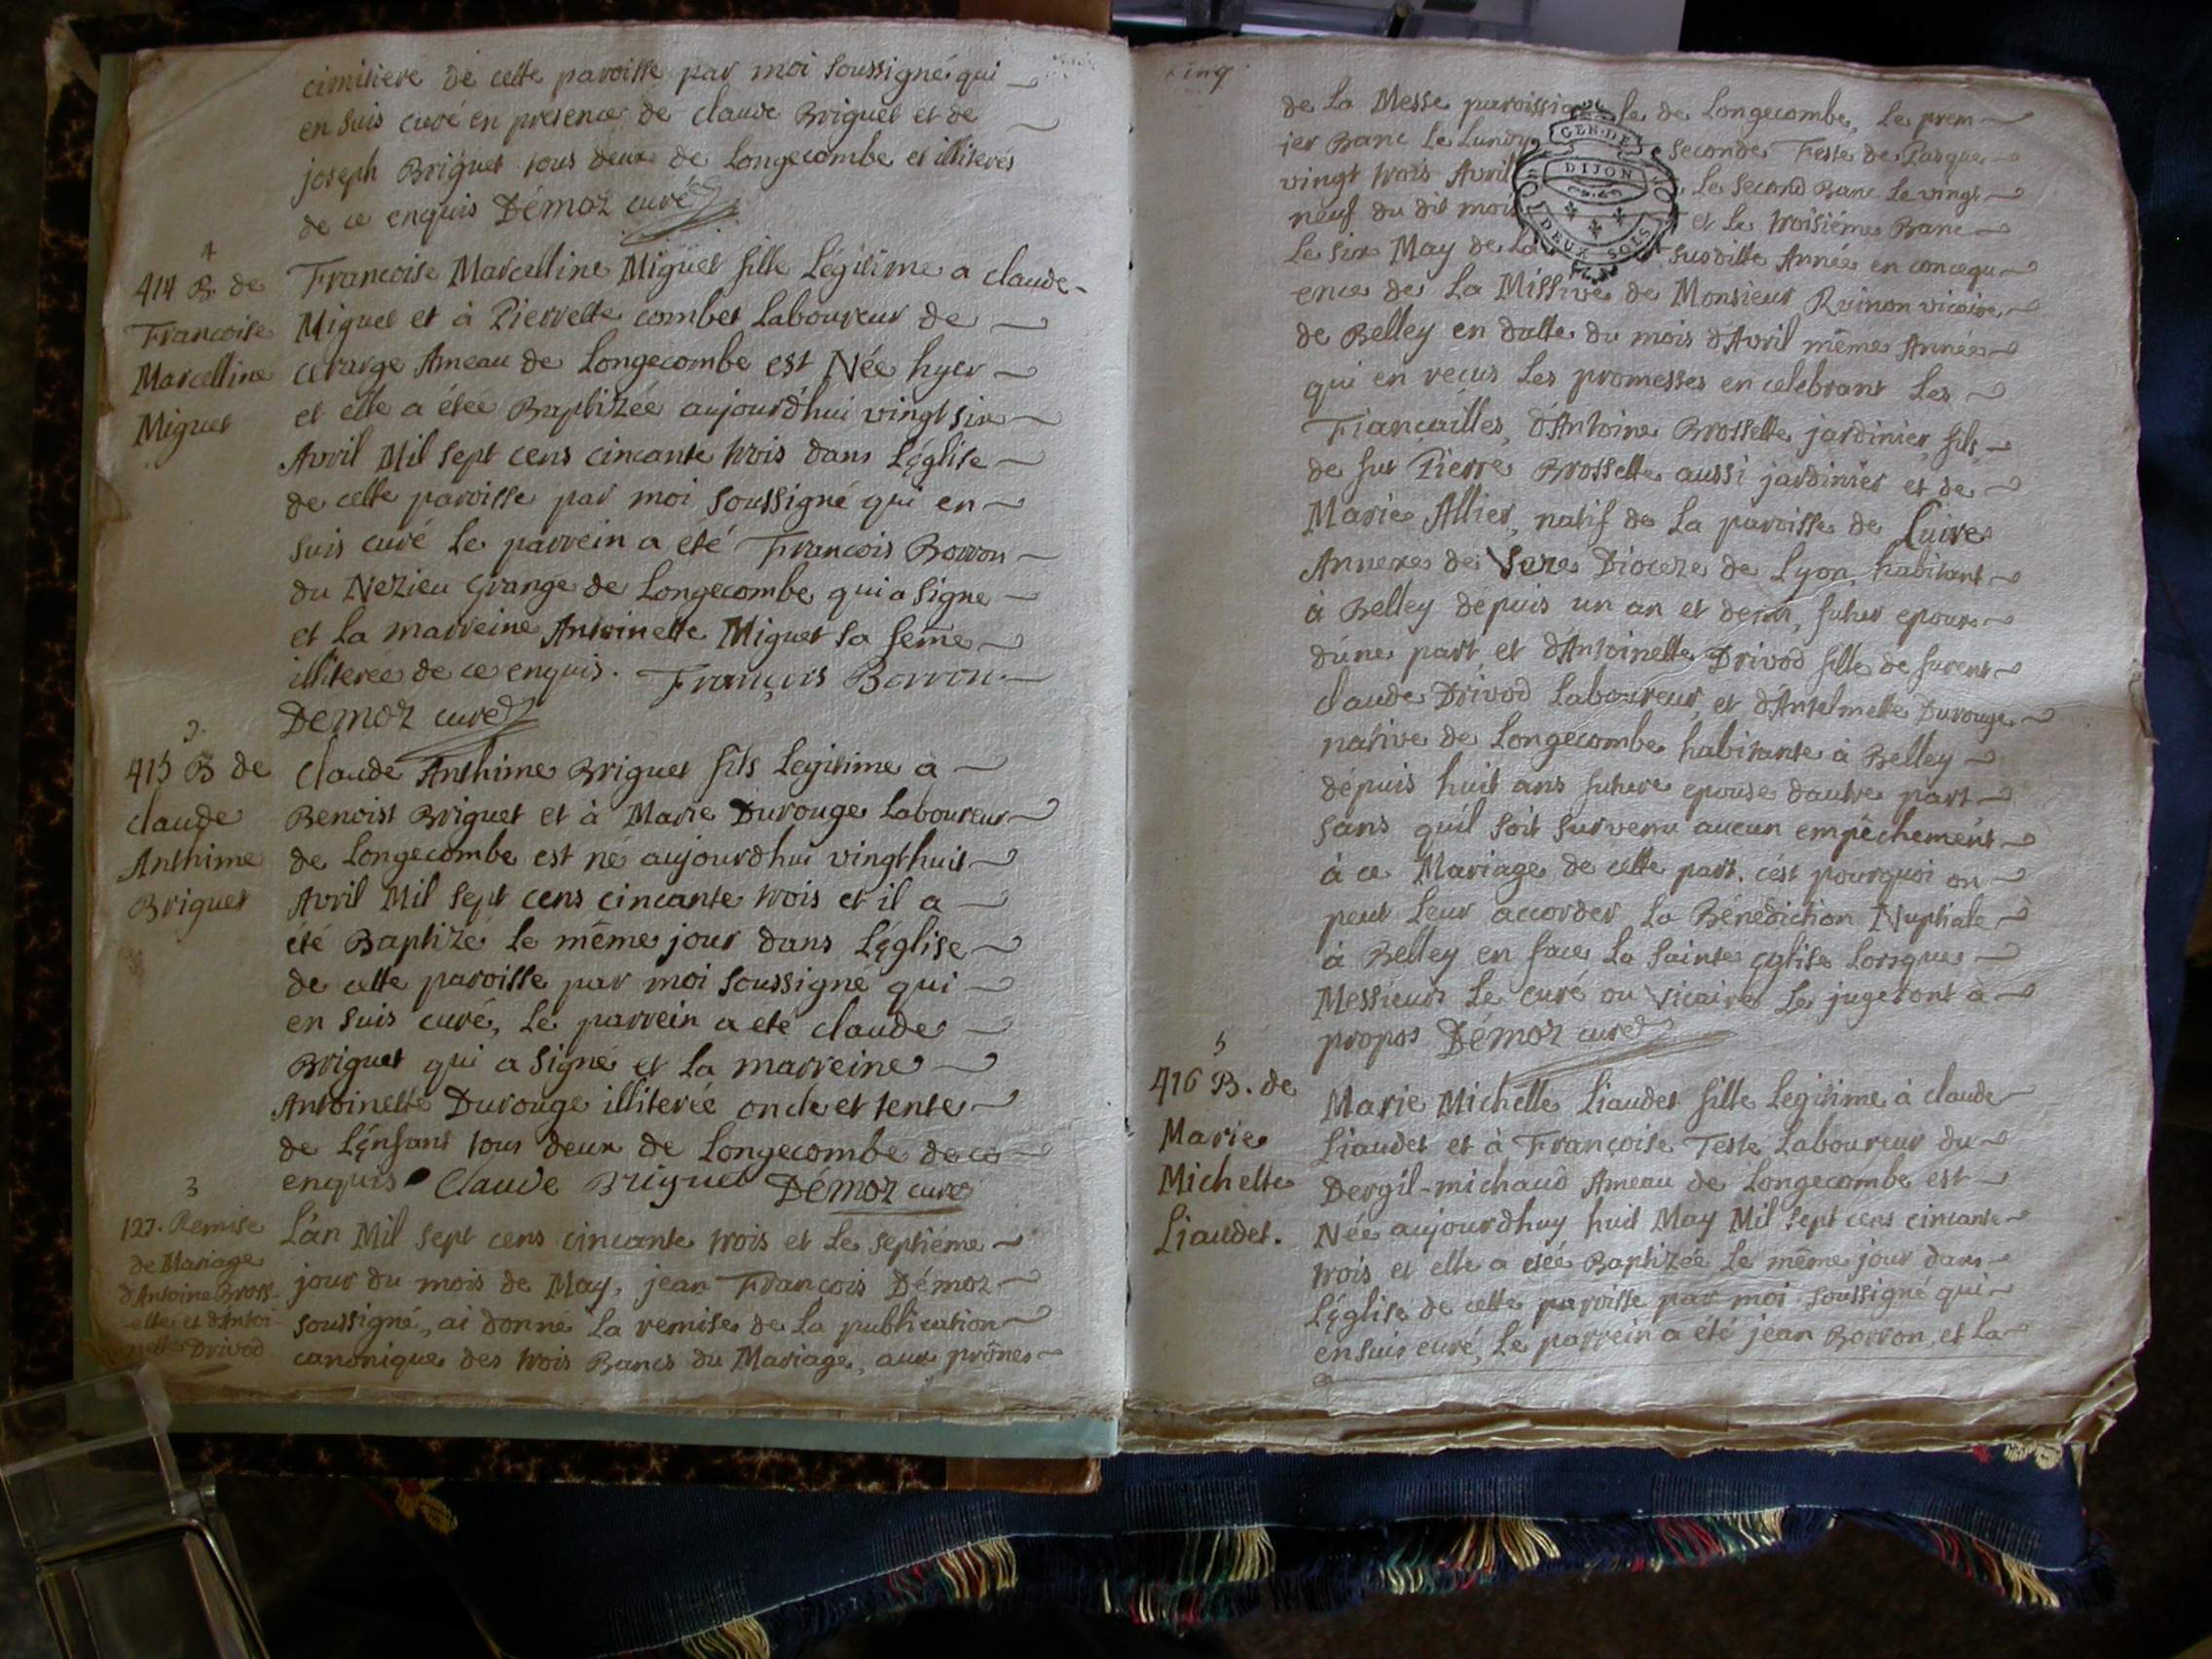 cimitiere de cette paroisse par moi soussigné qui
en suis curé en presence de claude Briguet et de
joseph Briguet tous deux de Longecombe et illiterés
de ce enquis Démoz curé
4
414 B. de
Francoise
Marcelline
Miguet
Francoise Marcelline Miguet fille Légitime a claude
Miguet et à Pierrette combet Laboureur de
cerarge Ameau de Longecombe est Née hyer
et elle a étée Baptizée aujourd'hui vingt six
Avril Mil sept cens cincante trois dans Léglise
de cette paroisse par moi soussigné qui en
suis curé Le parrein a été Francois Borron
du Nezieu Grange de Longecombe qui a signe
et La marreine Antoinette Miguet sa feme
illiterée de ce enquis. François Borron
Démoz curé
415 B de
claude
Anthime
Briguet
Claude Anthime Briguet fils Legitime a
Benoist Briguet et à Marie Durouge Laboureur
de Longecombe est né aujourdhui vingt huit
Avril Mil sept cens cincante trois et il a
été Baptizé Le même jour dans Léglise
de cette paroisse par moi soussigné qui
en suis curé, Le parrein a eté claude
Briguet qui a signé et La marreine
Antoinette Durouge illiterée oncle et tente
de Lénfant tous deux de Longecombe de ce
enquis Claude Briguet Démoz curé
3
127. Remise
de Mariage
d'Antoine Bross-
-ette et d'Antoi-
nette Drivod
L'án Mil sept cens cincante trois et Le septiéme
jour du mois de May, jean Francois Démoz
soussigné, ai donné La remise de La publication
canonique des trois Bancs du Mariage, aux prônes
cinq
de La Messe paroissiale de Longecombe, Le prem
ier Banc Le Lundy seconde Feste de Pasque
vingt trois Avril, Le second Banc Le vingt
neuf du dit mois et Le troisiéme Banc
Le six May de La susditte Année en concequ
ence de La Missive de Monsieur Ruinon vicaire
de Belley en datte du mois d'Avril même Année
qui en reçus Les promesses en celebrant Les
Fiançailles, d'Antoine Brossette jardinier, fils
de fut Pierre Brossette aussi jardinier et de
Marie Allier, natif de La paroisse de Luire
Annexe de Dioceze de Lyon, habitant
à Belley dépuis un an et demi, futur epoux
dúne part, et d'Antoinette Drivod fille de furent
claude Drivod Laboureur, et d'Antelmette Durouge
native de Longecombe habitante à Belley
dépuis huit ans future epouse dautre part
sans qu'il soit survenu aucun empêchement
à ce Mariage de cette part. cést pourquoi on
peut Leur accorder La Bénédiction Nuptiale
à Belley en face La sainte église Lorsque
Messieurs Le curé ou vicaire Le jugeront à
propos Démoz curé
5
416 B. de
Marie
Michelle
Liaudet.
Marie Michelle Liaudet fille Legitime à claude
Liaudet et à Françoise Teste Laboureur du
Dergil-michaud Ameau de Longecombe est
Née aujourdhuy huit May Mil sept cens cincante
trois et elle a etée Baptizée Le même jour dans
Léglise de cette paroisse par moi soussigné qui
en suis curé, Le parrein a été jean Borron et La
GEN. DE
DIJON
DEUX SOLS